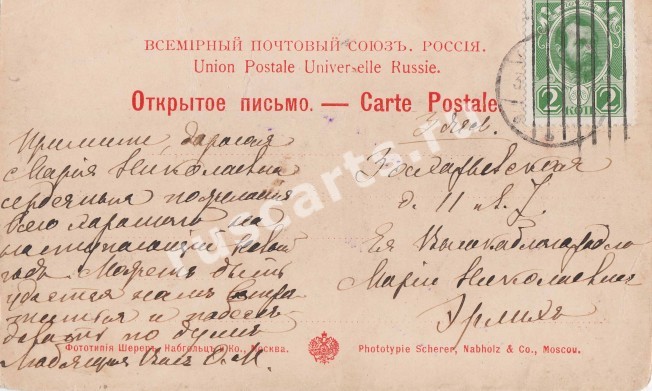 ВСЕМІРНЫЙ ПОЧТОВЫЙ СОЮЗЪ. РОССІЯ.
Union Postale Universelle Russie.
Открытое письмо. — Carte Postale
2 КОП 2
Примите, дорогая
Марія Николаевна
сердечныя пожелания
всего хорошаго на
наступающій Новый
годъ. Можетъ быть
удастся намъ
и
по душѣ
Васъ
д. 11 кв. 7.
Ея Высокоблагородію
Маріи Николаевнѣ
Эрлихъ
Фототипія Шереръ, Набгольцъ и Ко., Москва.
Phototypie Scherer, Nabholz & Co., Moscou.
ruscarts.ru